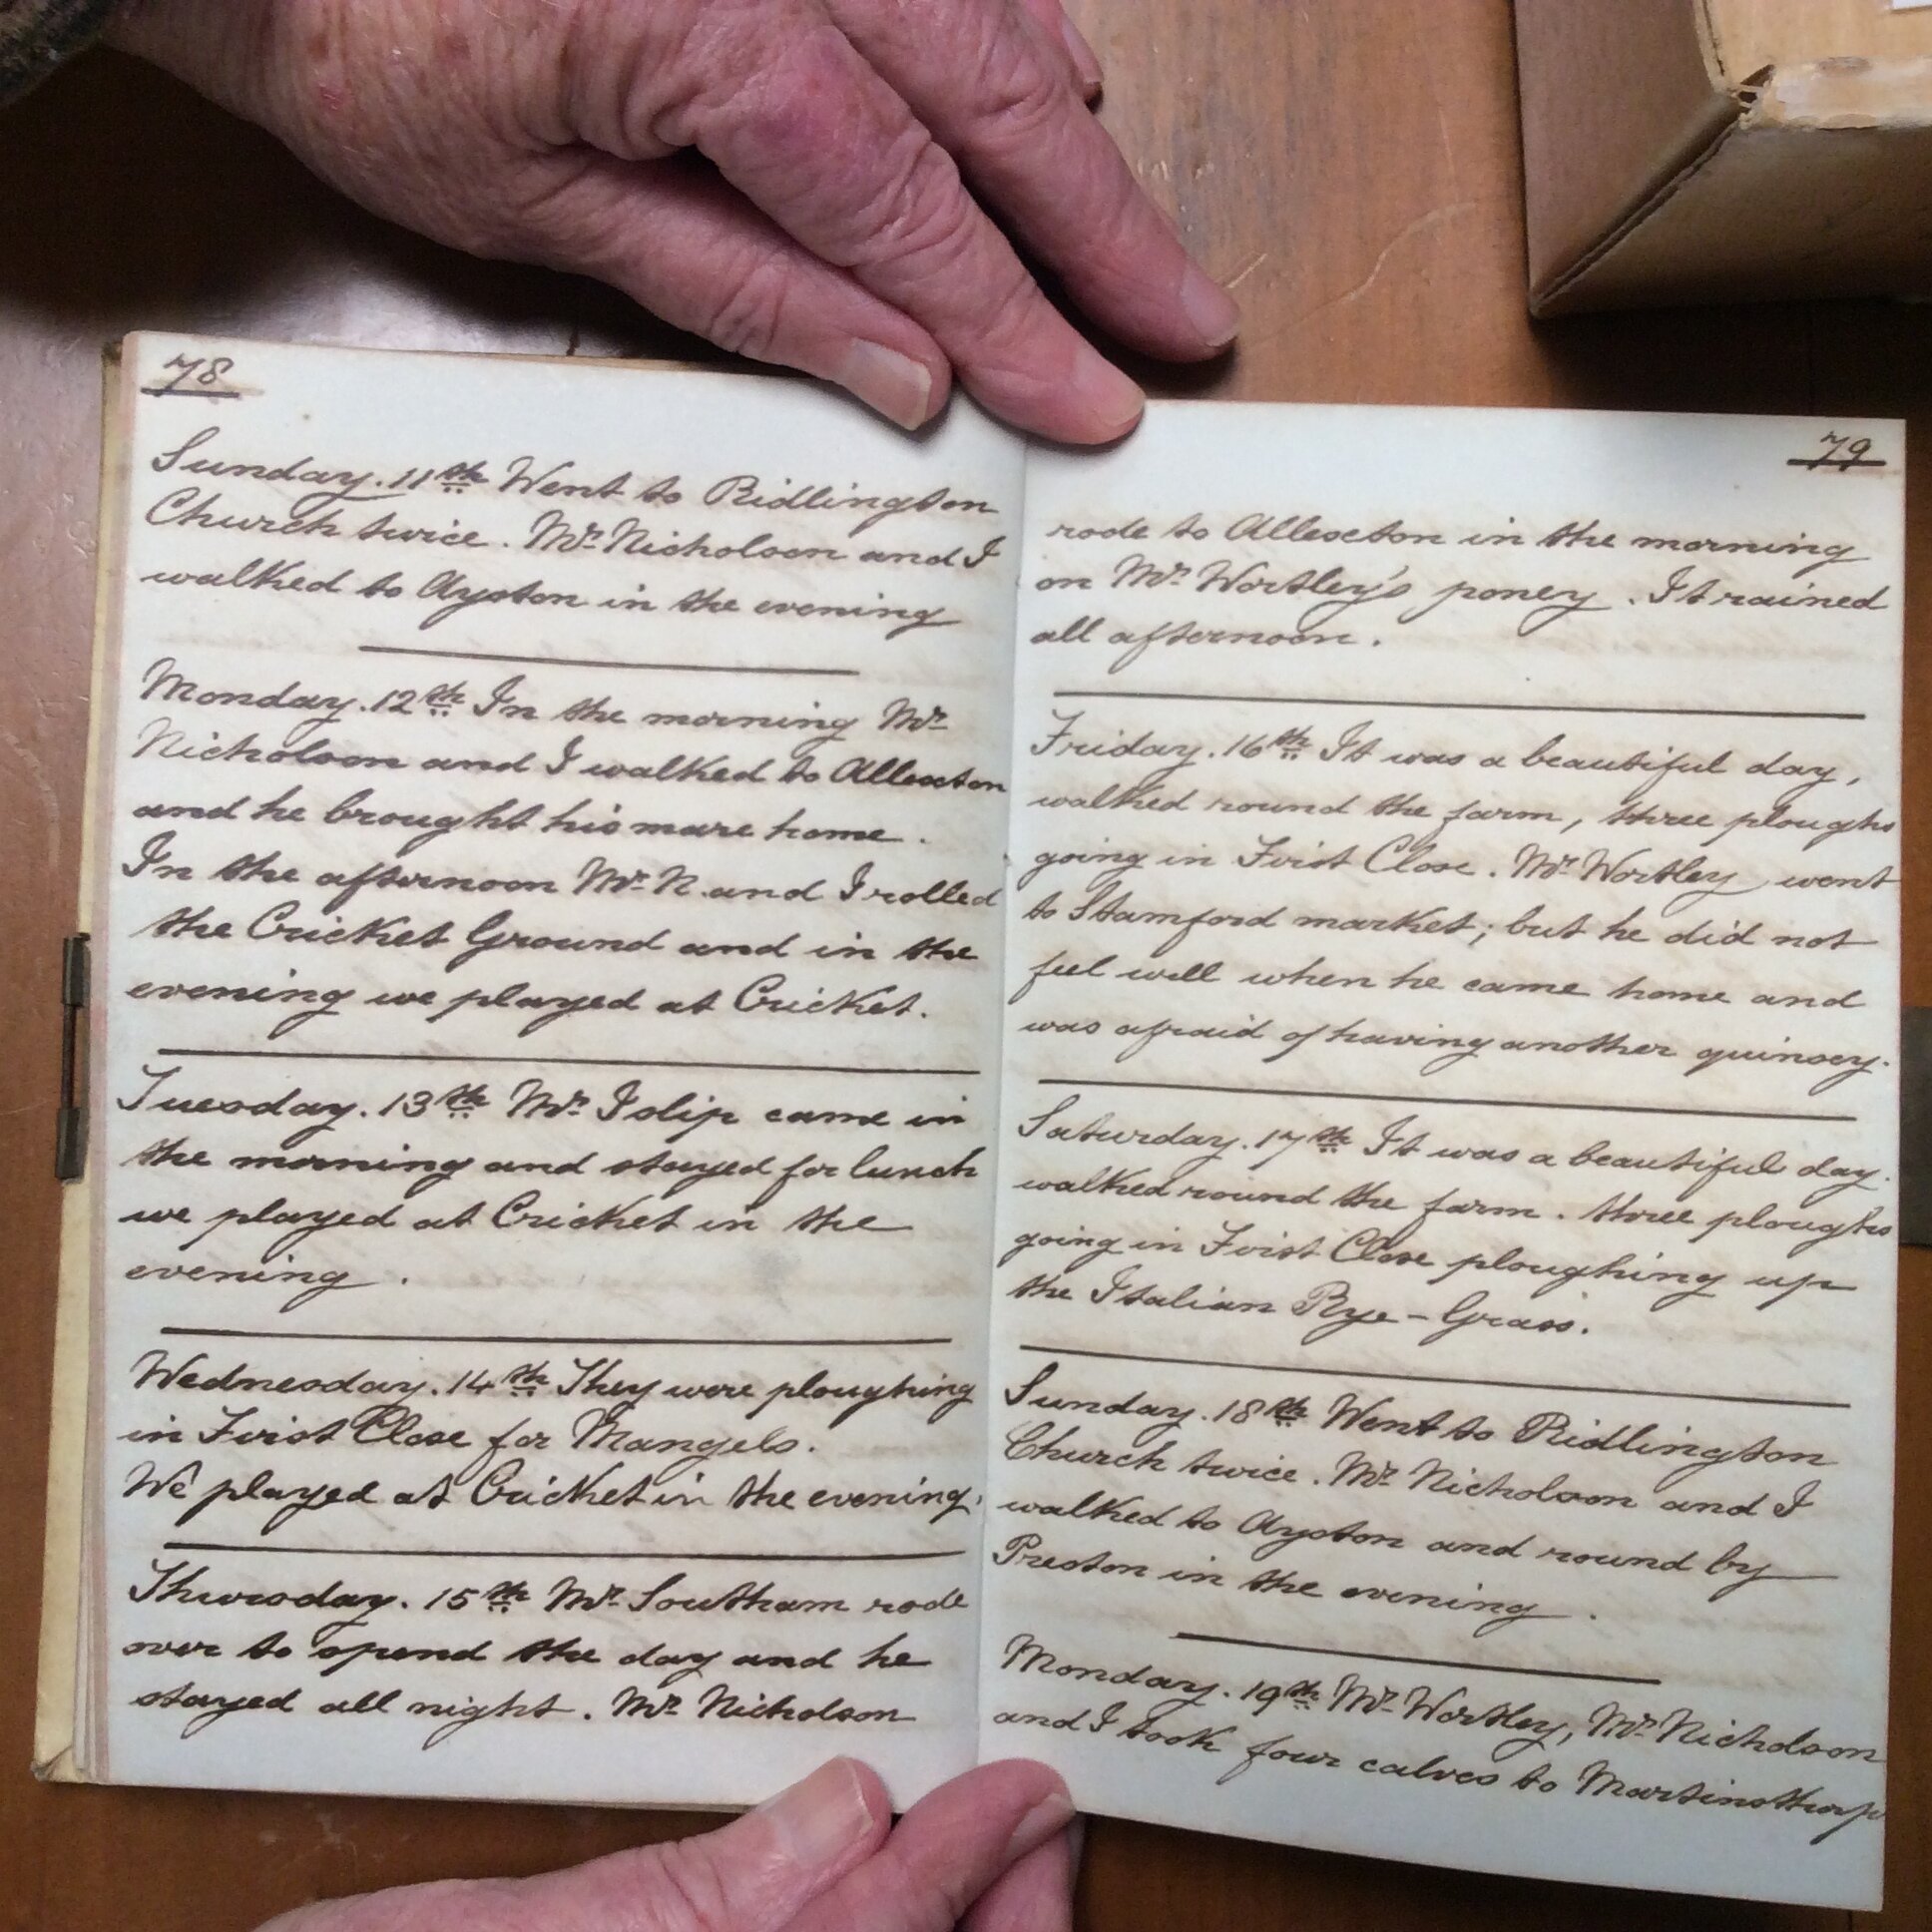 78
Sunday. 11th Went to Ridlington
Church twice. Mr Nicholson and I
walked to Ayston in the evening
Monday. 12th In the morning Mr
Nicholson and I walked to Allexton
and he brought his mare home.
In the afternoon Mr N. and I rolled
the Cricket Ground and in the
evening we played at Cricket.
Tuesday. 13th Mr Islip came in
the morning and stayed for lunch
we played at Cricket in the
evening.
Wednesday. 14th They were ploughing
in First Close for Mangels.
We played at Cricket in the evening.
Thursday. 15th Mr Southam rode
over to spend the day and he
stayed all night. Mr Nicholson
79
rode to Allexton in the morning
on Mr Wortley's poney. It rained
all afternoon.
Friday. 16th It was a beautiful day,
walked round the farm, three ploughs
going in First Close. Mr Wortley went
to Stamford market; but he did not
feel well when he came home and
was afraid of having another quinsey.
Saturday. 17th It was a beautiful day.
walked round the farm. three ploughs
going in First Close ploughing up
the Italian Rye-Grass.
Sunday. 18th Went to Ridlington
Church twice. Mr Nicholson and I
walked to Ayston and round by
Preston in the evening.
Monday. 19th Mr Wortley, Mr Nicholson
and I took four calves to Martinsthorp